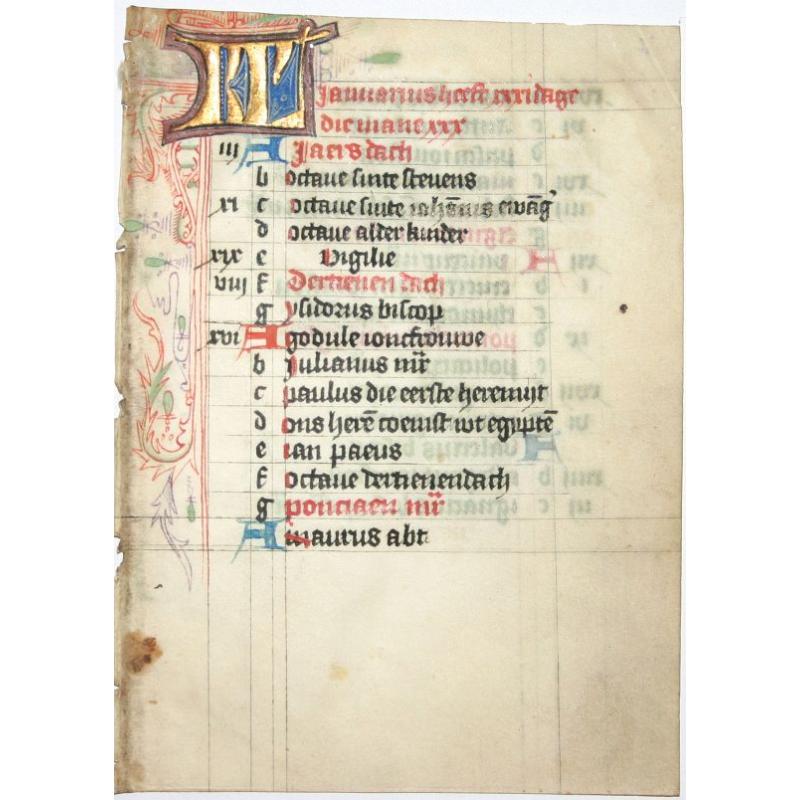 KL Januarius heeft xxxi dage
die mane xxx
iii A Jaers dach
b octaue sinte steuens
xi c octaue sinte iohānis ewāg
d octaue alder kinder
xix e Vigilie
viii f Dertienen dach
g ysidorus biscop
xvi A godule ioncfrouwe
b julianus mr̄
c paulus die eerste heremijt
d ons herē coemst wt egyptē
e ian paeus
f octaue dertienendach
g ponciaen mr̄
A maurus abt